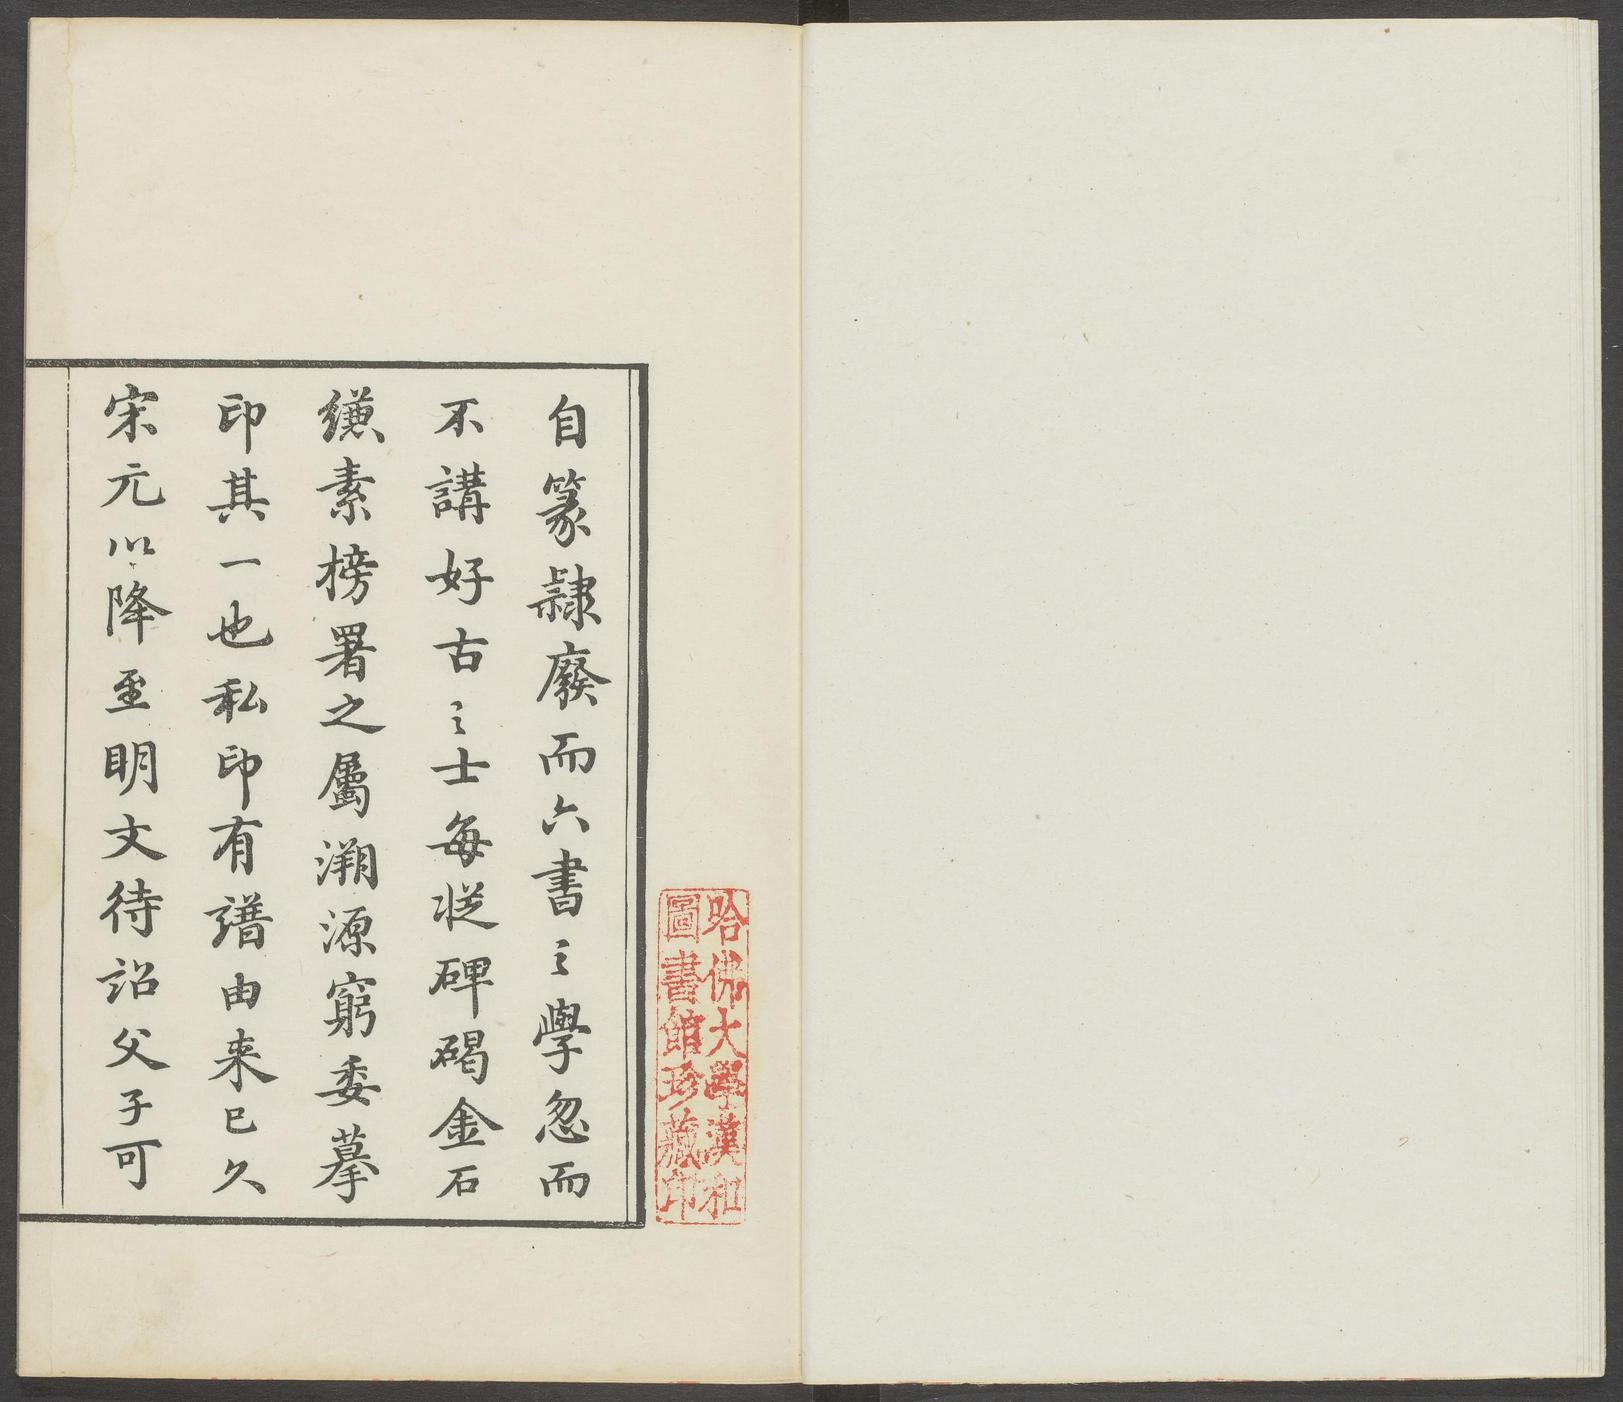 自篆隸廢而六書之學忽而
不講好古之士每從碑碣金石
縑素榜署之屬溯源窮委摹
印其一也私印有譜由来已久
宋元以降至明文待詔父子可
哈佛大學漢和
圖書館珍藏印